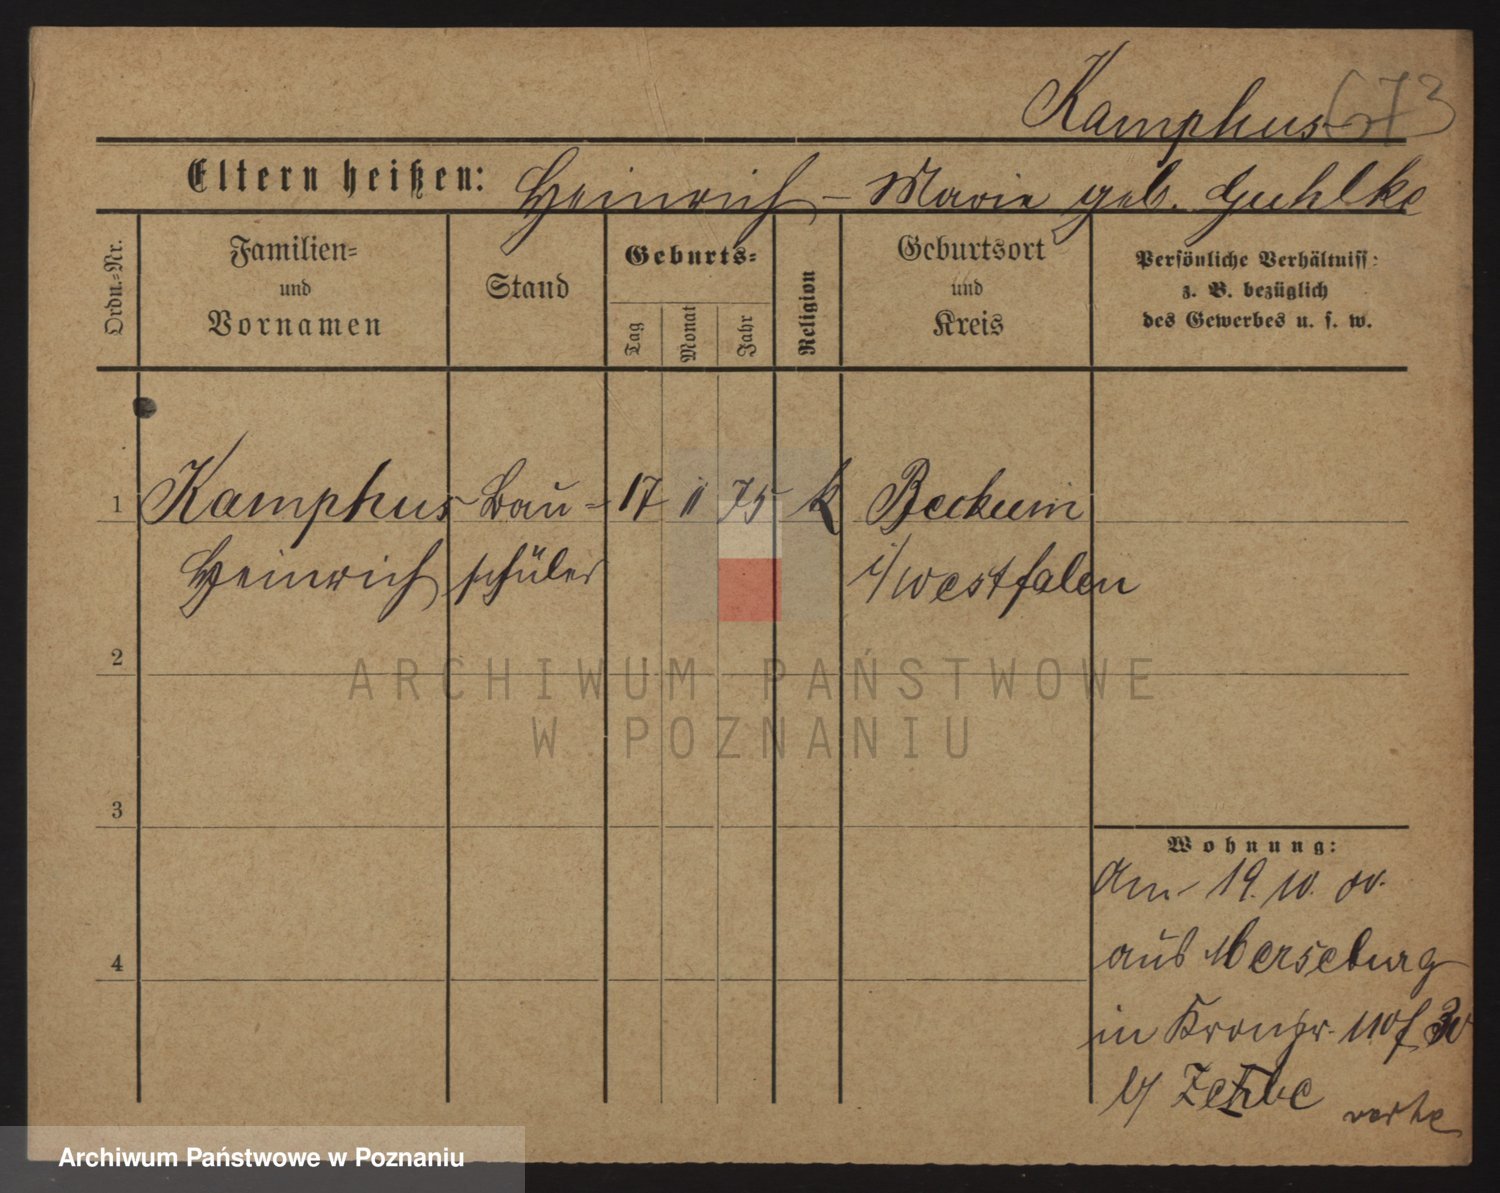 Kamphus 673
Eltern heißen: Heinrich - Marie geb. Guhlke
Ordn.-Nr.
Familien-
und
Vornamen
Stand
Geburts-
Tag
Monat
Jahr
Religion
Geburtsort
und
Kreis
Persönliche Verhältniss:
z. B. bezüglich
des Gewerbes u. s. w.
1 Kamphus Bau- 17 11 75 k Beckum
Heinrich schüler i/Westfalen
2
ARCHIWUM PAŃSTWOWE
W POZNANIU
3
Wohnung:
Am 19. 10. 00.
4
aus Merseburg
in Kronpr.
b/
Archiwum Państwowe w Poznaniu